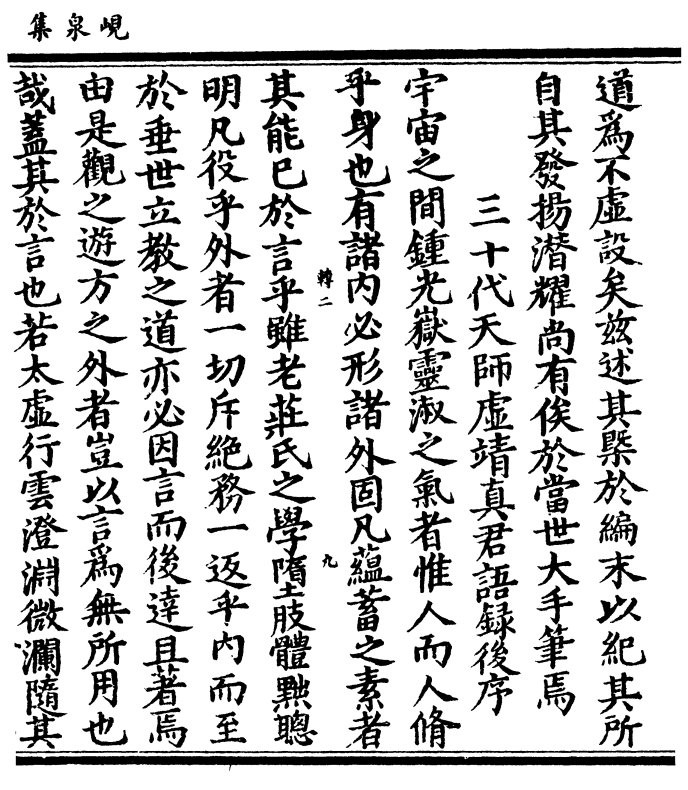 峴泉集
道爲不虛設矣兹述其槩於編末以紀其所
自其發揚潛耀尚有俟於當世大手筆焉
三十代天師虛靖真君語録後序
宇宙之間鍾光嶽靈淑之氣者惟人而人脩
乎身也有諸内必形諸外固凡蘊蓄之素者
轉二
九
其能已於言乎雖老莊氏之學隳肢體黜聰
明凡役乎外者一切斥絶務一返乎内而至
於垂世立教之道亦必因言而後達且著焉
由是觀之遊方之外者豈以言爲無所用也
哉蓋其於言也若太虛行雲澄淵微瀾隨其